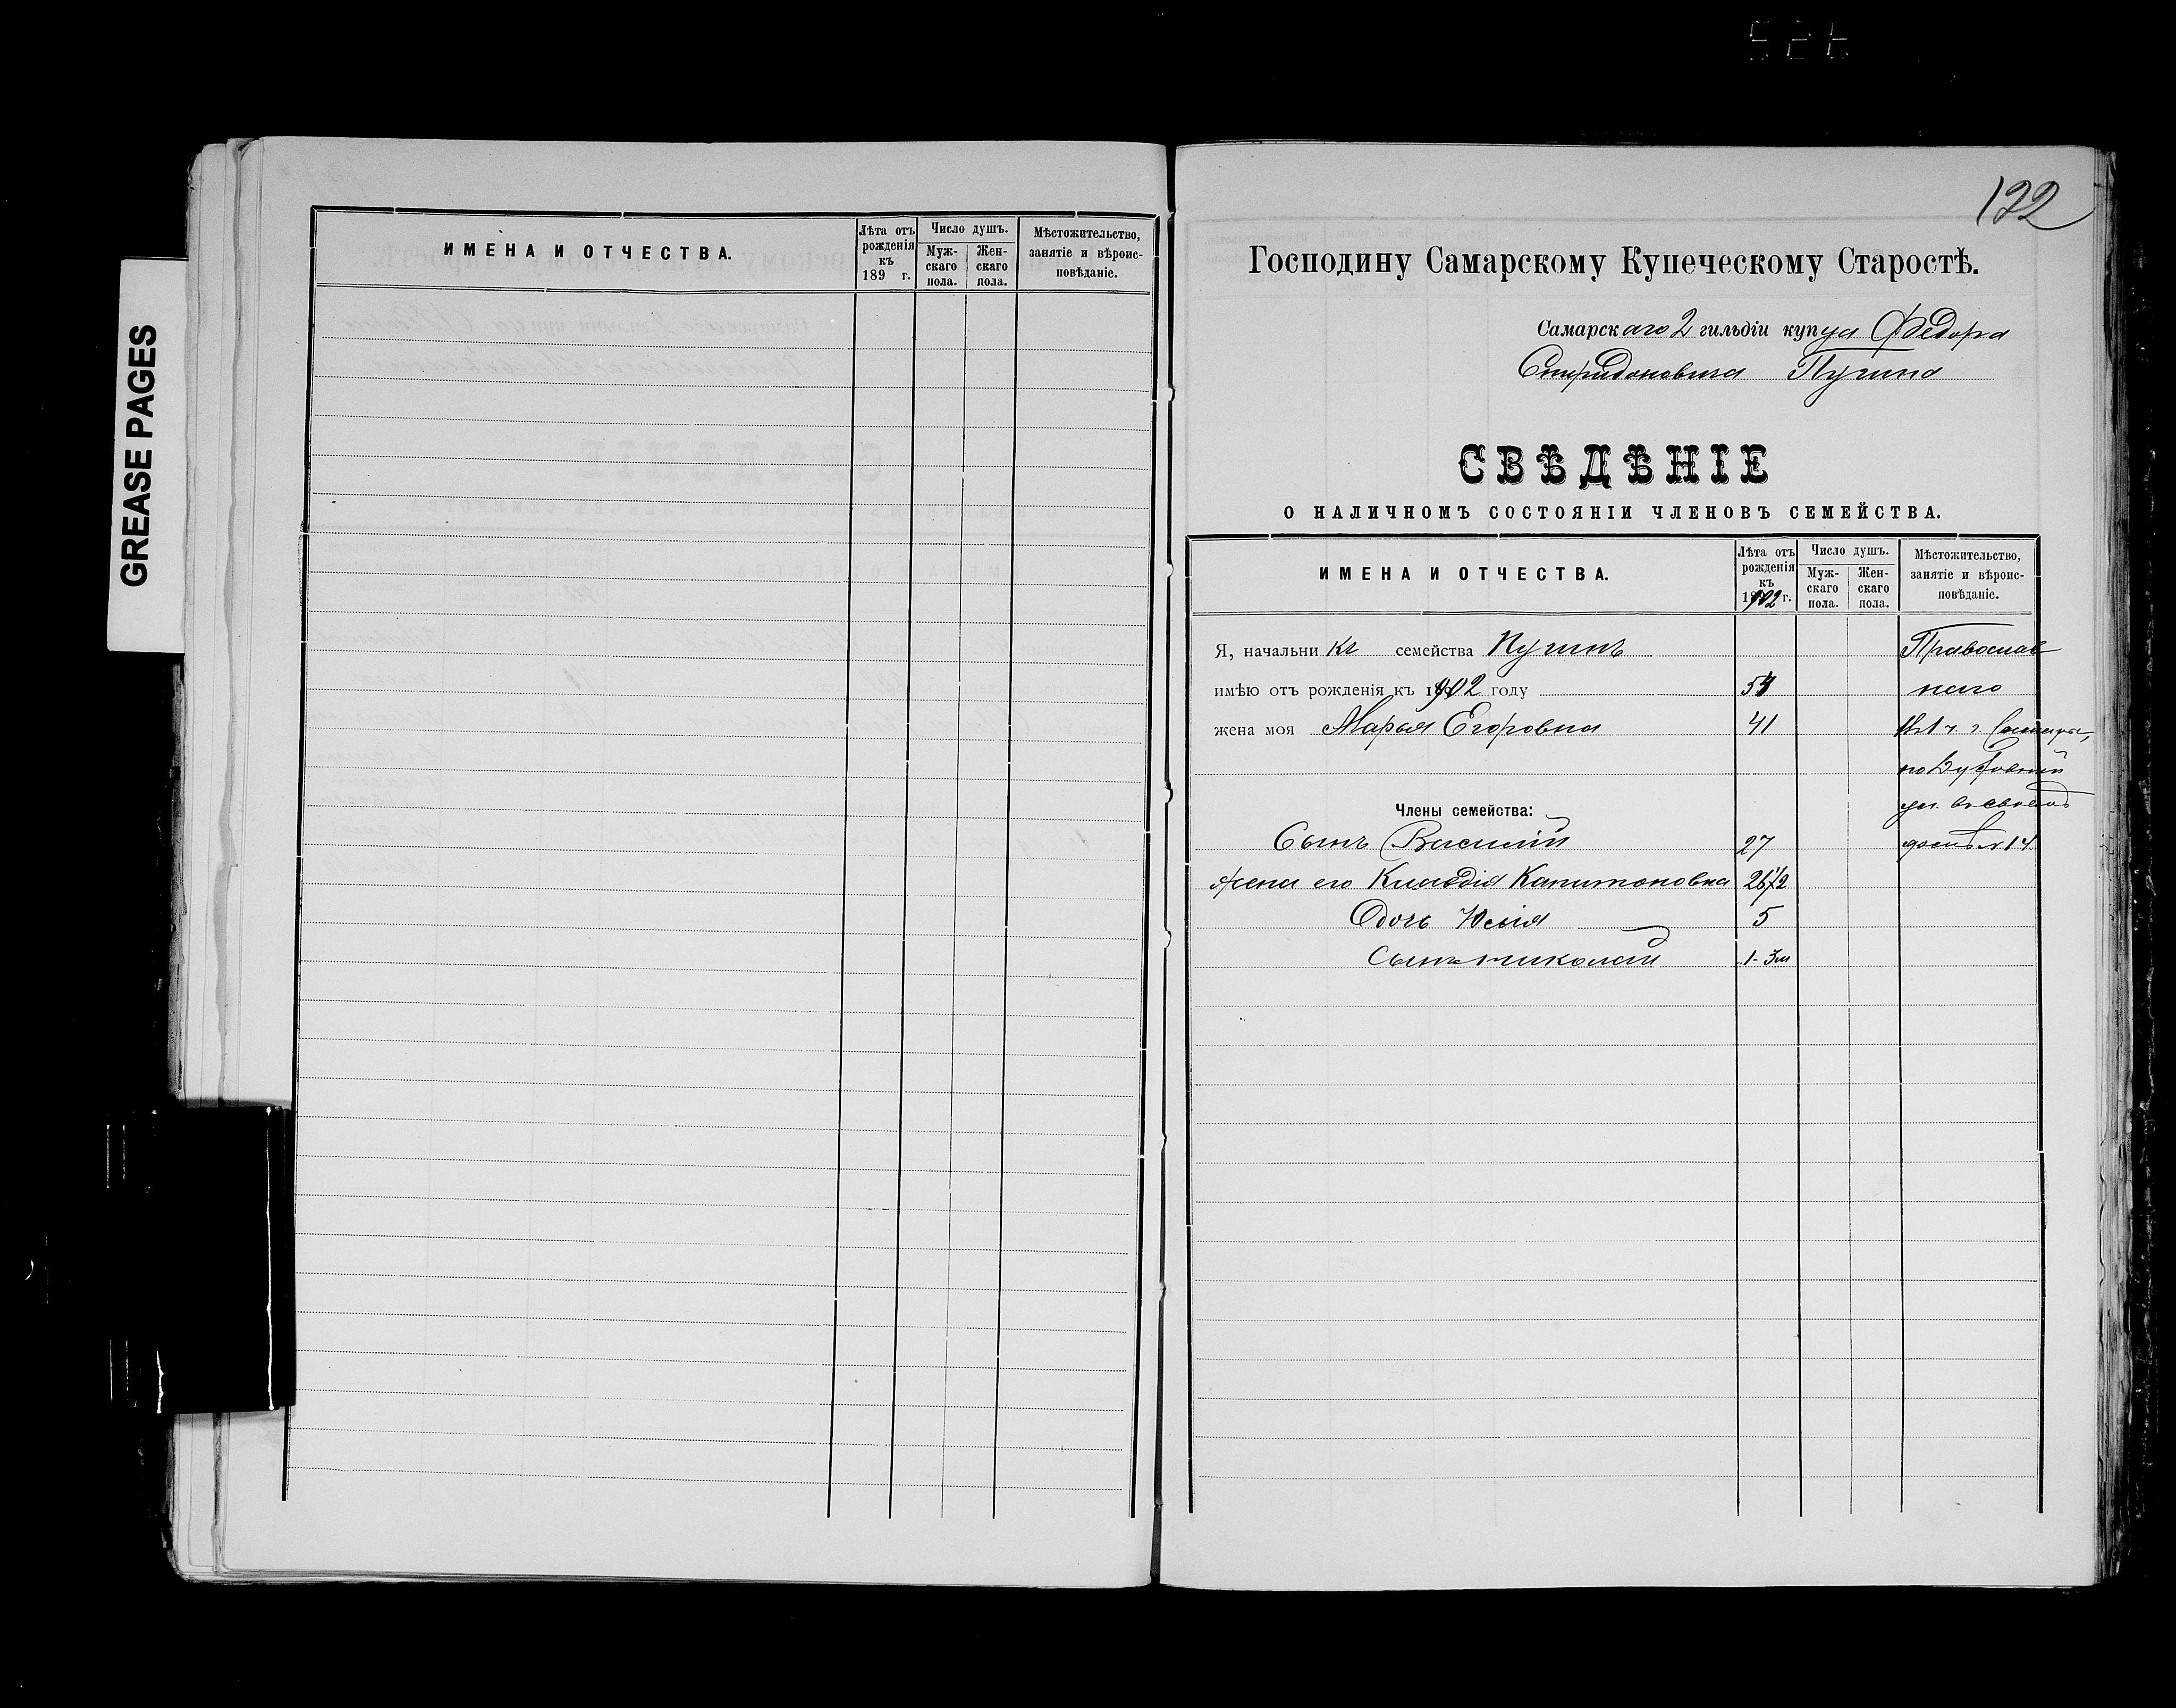 GREASE PAGES
ИМЕНА И ОТЧЕСТВА.
Лѣта отъ рожденія къ 189 г.
Число душъ.
Мужскаго пола.
Женскаго пола.
Мѣстожительство, занятіе и вѣроисповѣданіе.
122
Господину Самарскому Купеческому Старостѣ.
Самарскаго 2 гильдіи купца Федора
Спиридоновича Пугина
СВѢДѢНІЕ
О НАЛИЧНОМЪ СОСТОЯНІИ ЧЛЕНОВЪ СЕМЕЙСТВА.
ИМЕНА И ОТЧЕСТВА.
Лѣта отъ рожденія къ 1902 г.
Число душъ.
Мужскаго пола.
Женскаго пола.
Мѣстожительство, занятіе и вѣроисповѣданіе.
Я, начальникъ семейства Пугинъ Православ
имѣю отъ рожденія къ 1902 году наго
жена моя Марья Егоровна 41 г. Самары,
по
ул. въ своемъ
Члены семейства:
Сынъ Василий 27 домѣ № 14
Жена его Клавдия Капитоновна
5
Сынъ николай 1 - 3 м